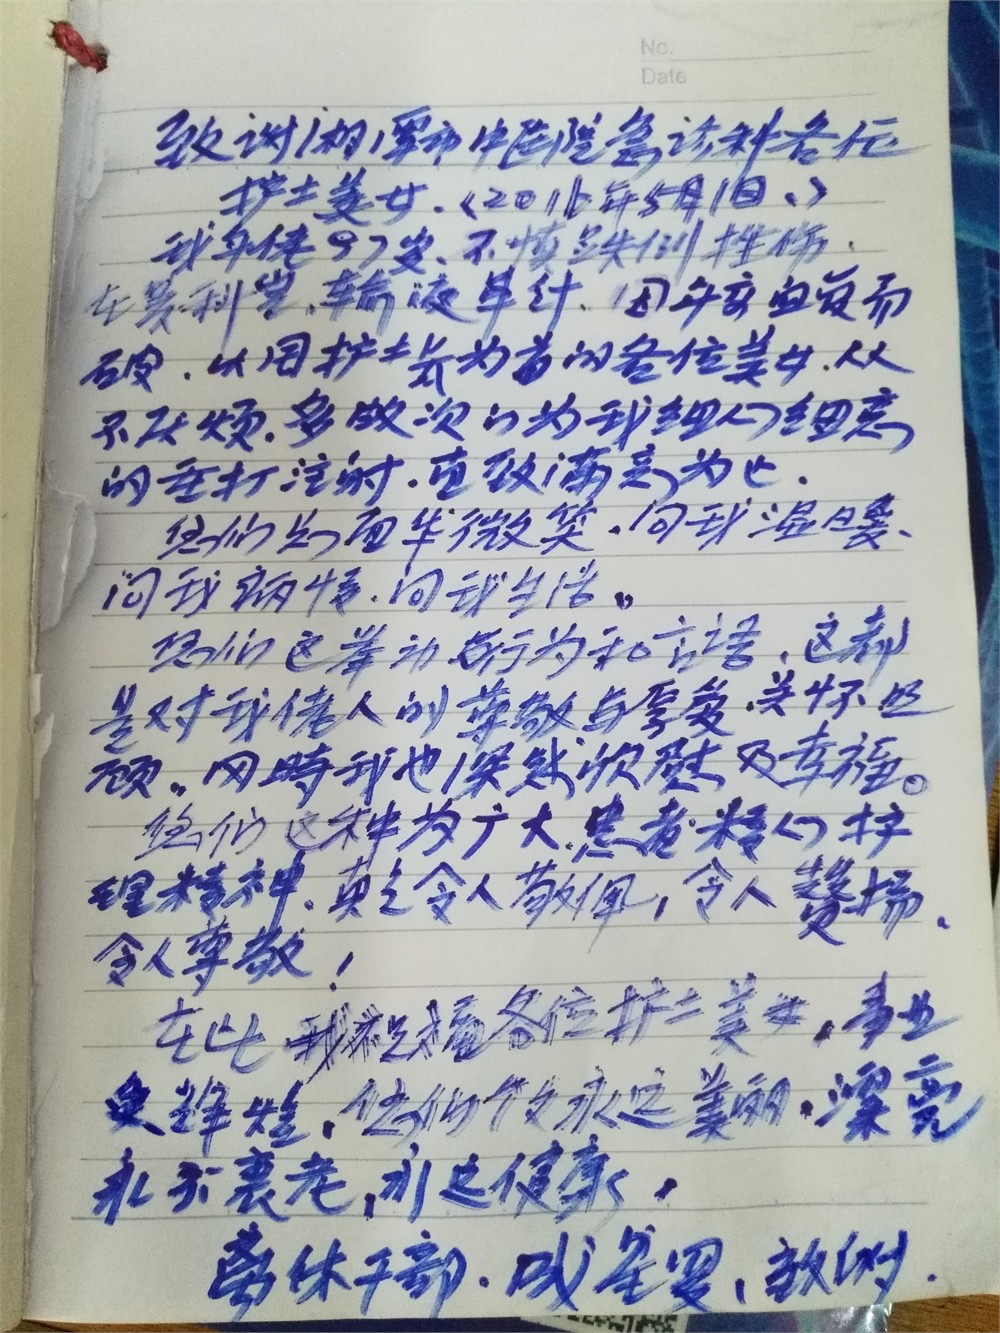 No.
Date
致谢湘潭市中医院急诊科各位
护士美女.《2016年5月1日、》
我年佬97岁、不慎跌倒挫伤.
在 科 、输液 针. 因年 血 而
破. 以 护士 为首的各位美女.从
不厌烦.多 次的为我细心细意
的 打注射.直致满意为止.
您们 面带微笑.问我温暖、
问我病情.问我生活。
您们这举动与行为和言语、这都
是对我佬人的尊敬与 爱.关怀照
顾。同時我也深感欣慰及幸福。
您们这种为广大患者精心护
理精神.真是令人敬佩,令人赞揚、
令人尊敬!
在此我祝福各位护士美女,事业
更辉煌,您们个个永远美丽.漂亮
永不衰老,永远健康,
离休干部. 成 、致谢.